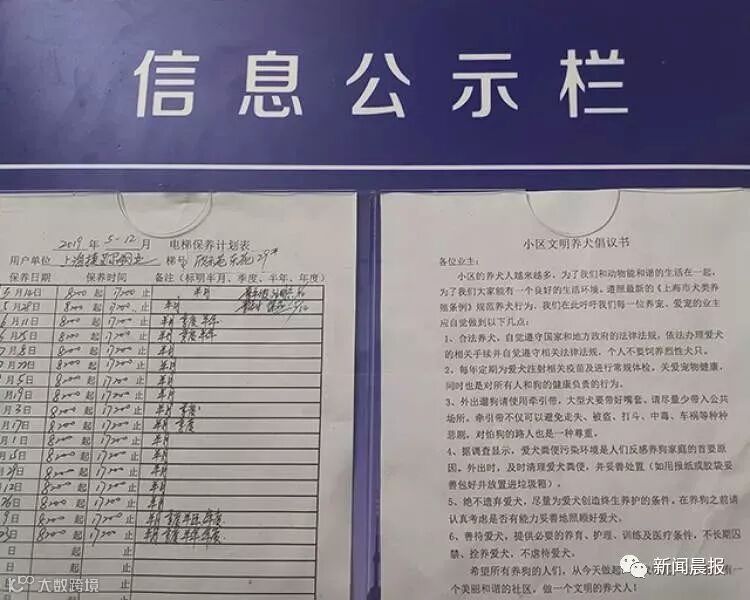 信息公示栏
2019年 5-12月 电梯保养计划表
用户单位 梯号 29#
保养日期 保养时间 备注（标明半月、季度、半年、年度）
月14日 8:00起 17:00止 半月
月28日 8:00起 17:00止 半月
6月11日 8:00起 17:00止 半月 季度 半年
6月25日 8:00起 17:00止 半月 季度 半年
月8日 8:00起 17:00止 半月
月22日 8:00起 17:00止 半月
月5日 8:00起 17:00止 半月
月19日 8:00起 17:00止 半月
月3日 8:00起 17:00止 半月 季度
月17日 8:00起 17:00止 半月 季度
月1日 8:00起 17:00止 半月
月15日 8:00起 17:00止 半月
月29日 8:00起 17:00止 半月
月12日 8:00起 17:00止 半月
26日 8:00起 17:00止 半月
日 8:00起 17:00止 半月 季度 半年 年度
日 8:00起 17:00止 半月 季度 半年 年度
日 起 止
日 起 止
日 止
小区文明养犬倡议书
各位业主：
小区的养犬人越来越多，为了我们和动物能和谐的生活在一起，
为了我们大家能有一个良好的生活环境，遵照最新的《上海市犬类养
殖条例》规范养犬行为，我们在此呼吁我们每一位养宠、爱宠的业主
应自觉做到以下几点：
1、合法养犬，自觉遵守国家和地方政府的法律法规，依法办理爱犬
的相关手续并自觉遵守相关法律法规，个人不要饲养烈性犬只。
2、每年定期为爱犬注射相关疫苗及进行常规体检，关爱宠物健康，
同时也是对所有人和狗的健康负责的行为。
3、外出遛狗请使用牵引带，大型犬要带好嘴套。请尽量少带入公共
场所。牵引带不仅可以避免走失、被盗、打斗、中毒、车祸等种种
悲剧，对怕狗的路人也是一种尊重。
4、据调查显示，爱犬粪便污染环境是人们反感养狗家庭的首要原
因。外出时，及时清理爱犬粪便，并妥善处置（如用报纸或胶袋妥
善包好并放置进垃圾箱）。
5、绝不遗弃爱犬，尽量为爱犬创造终生养护的条件。在养狗之前请
认真考虑是否有能力妥善地照顾好爱犬。
6、善待爱犬，提供必要的养育、护理、训练及医疗条件，不长期囚
禁、拴养爱犬，不虐待爱犬。
希望所有养狗的人们，从今天做起 有一
个美丽和谐的社区，做一个文明的养犬人！
新闻晨报
大数跨境